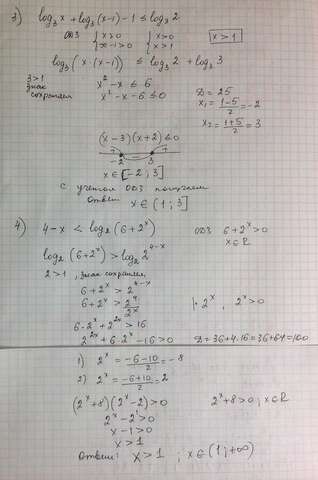 3) log₃x + log₃(x-1) - 1 ≤ log₃2
ОДЗ { x>0 { x>0 x>1
x-1>0 x>1
log₃(x(x-1)) ≤ log₃2 + log₃3
3>1 x² - x ≤ 6 D = 25
знак x² - x - 6 ≤ 0 x₁ = 1-5/2 = -2
сохраняем x₂ = 1+5/2 = 3
(x-3)(x+2) ≤ 0
+ - +
-2 3
x ∈ [-2; 3]
с учётом ОДЗ получаем
Ответ x ∈ (1; 3]
4) 4-x < log₂(6+2ˣ) ОДЗ 6+2ˣ>0
x∈R
log₂(6+2ˣ) > log₂2⁴⁻ˣ
2>1, знак сохраняем
6+2ˣ > 2⁴⁻ˣ
6+2ˣ > 2⁴/2ˣ |·2ˣ, 2ˣ>0
6·2ˣ + 2²ˣ > 16
2²ˣ + 6·2ˣ - 16 > 0 D = 36+4·16 = 36+64 = 100
1) 2ˣ = -6-10/2 = -8
2) 2ˣ = -6+10/2 = 2
(2ˣ+8)(2ˣ-2) > 0 2ˣ+8>0; x∈R
2ˣ - 2¹ > 0
x - 1 > 0
x > 1
Ответ: x > 1 ; x∈(1; +∞)